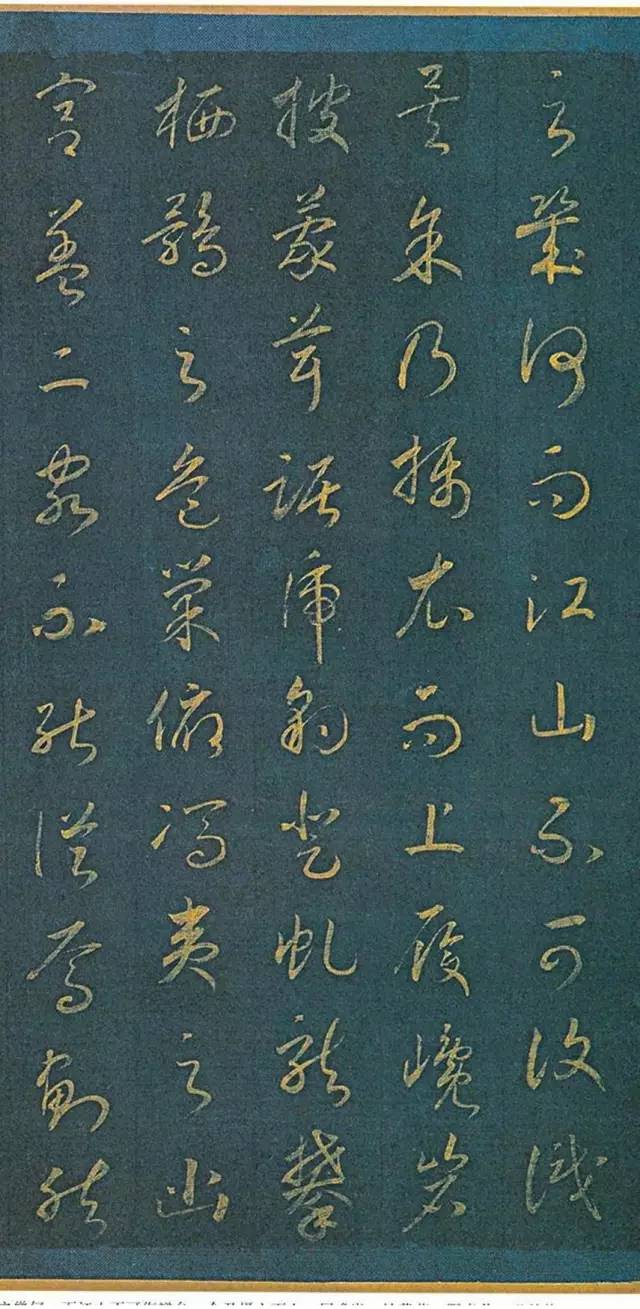 之幾何而江山不可復識
矣余乃攝衣而上履巉岩
披蒙茸踞虎豹登虬龍攀
栖鶻之危巢俯馮夷之幽
宮蓋二客不能從焉劃然